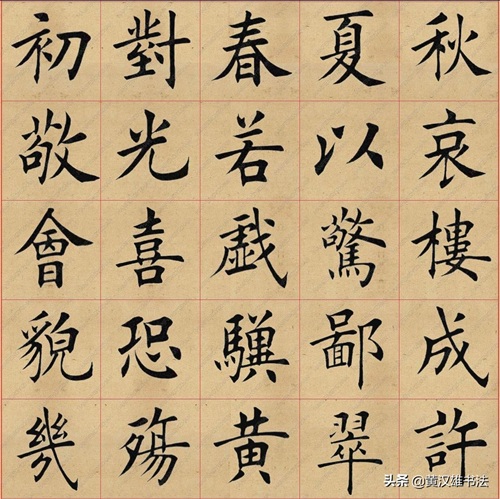 初對春夏秋
敬光若以哀
會喜戲驚樓
貌恐驥鄙成
幾殤黃翠許
头条 @黄汉雄书法